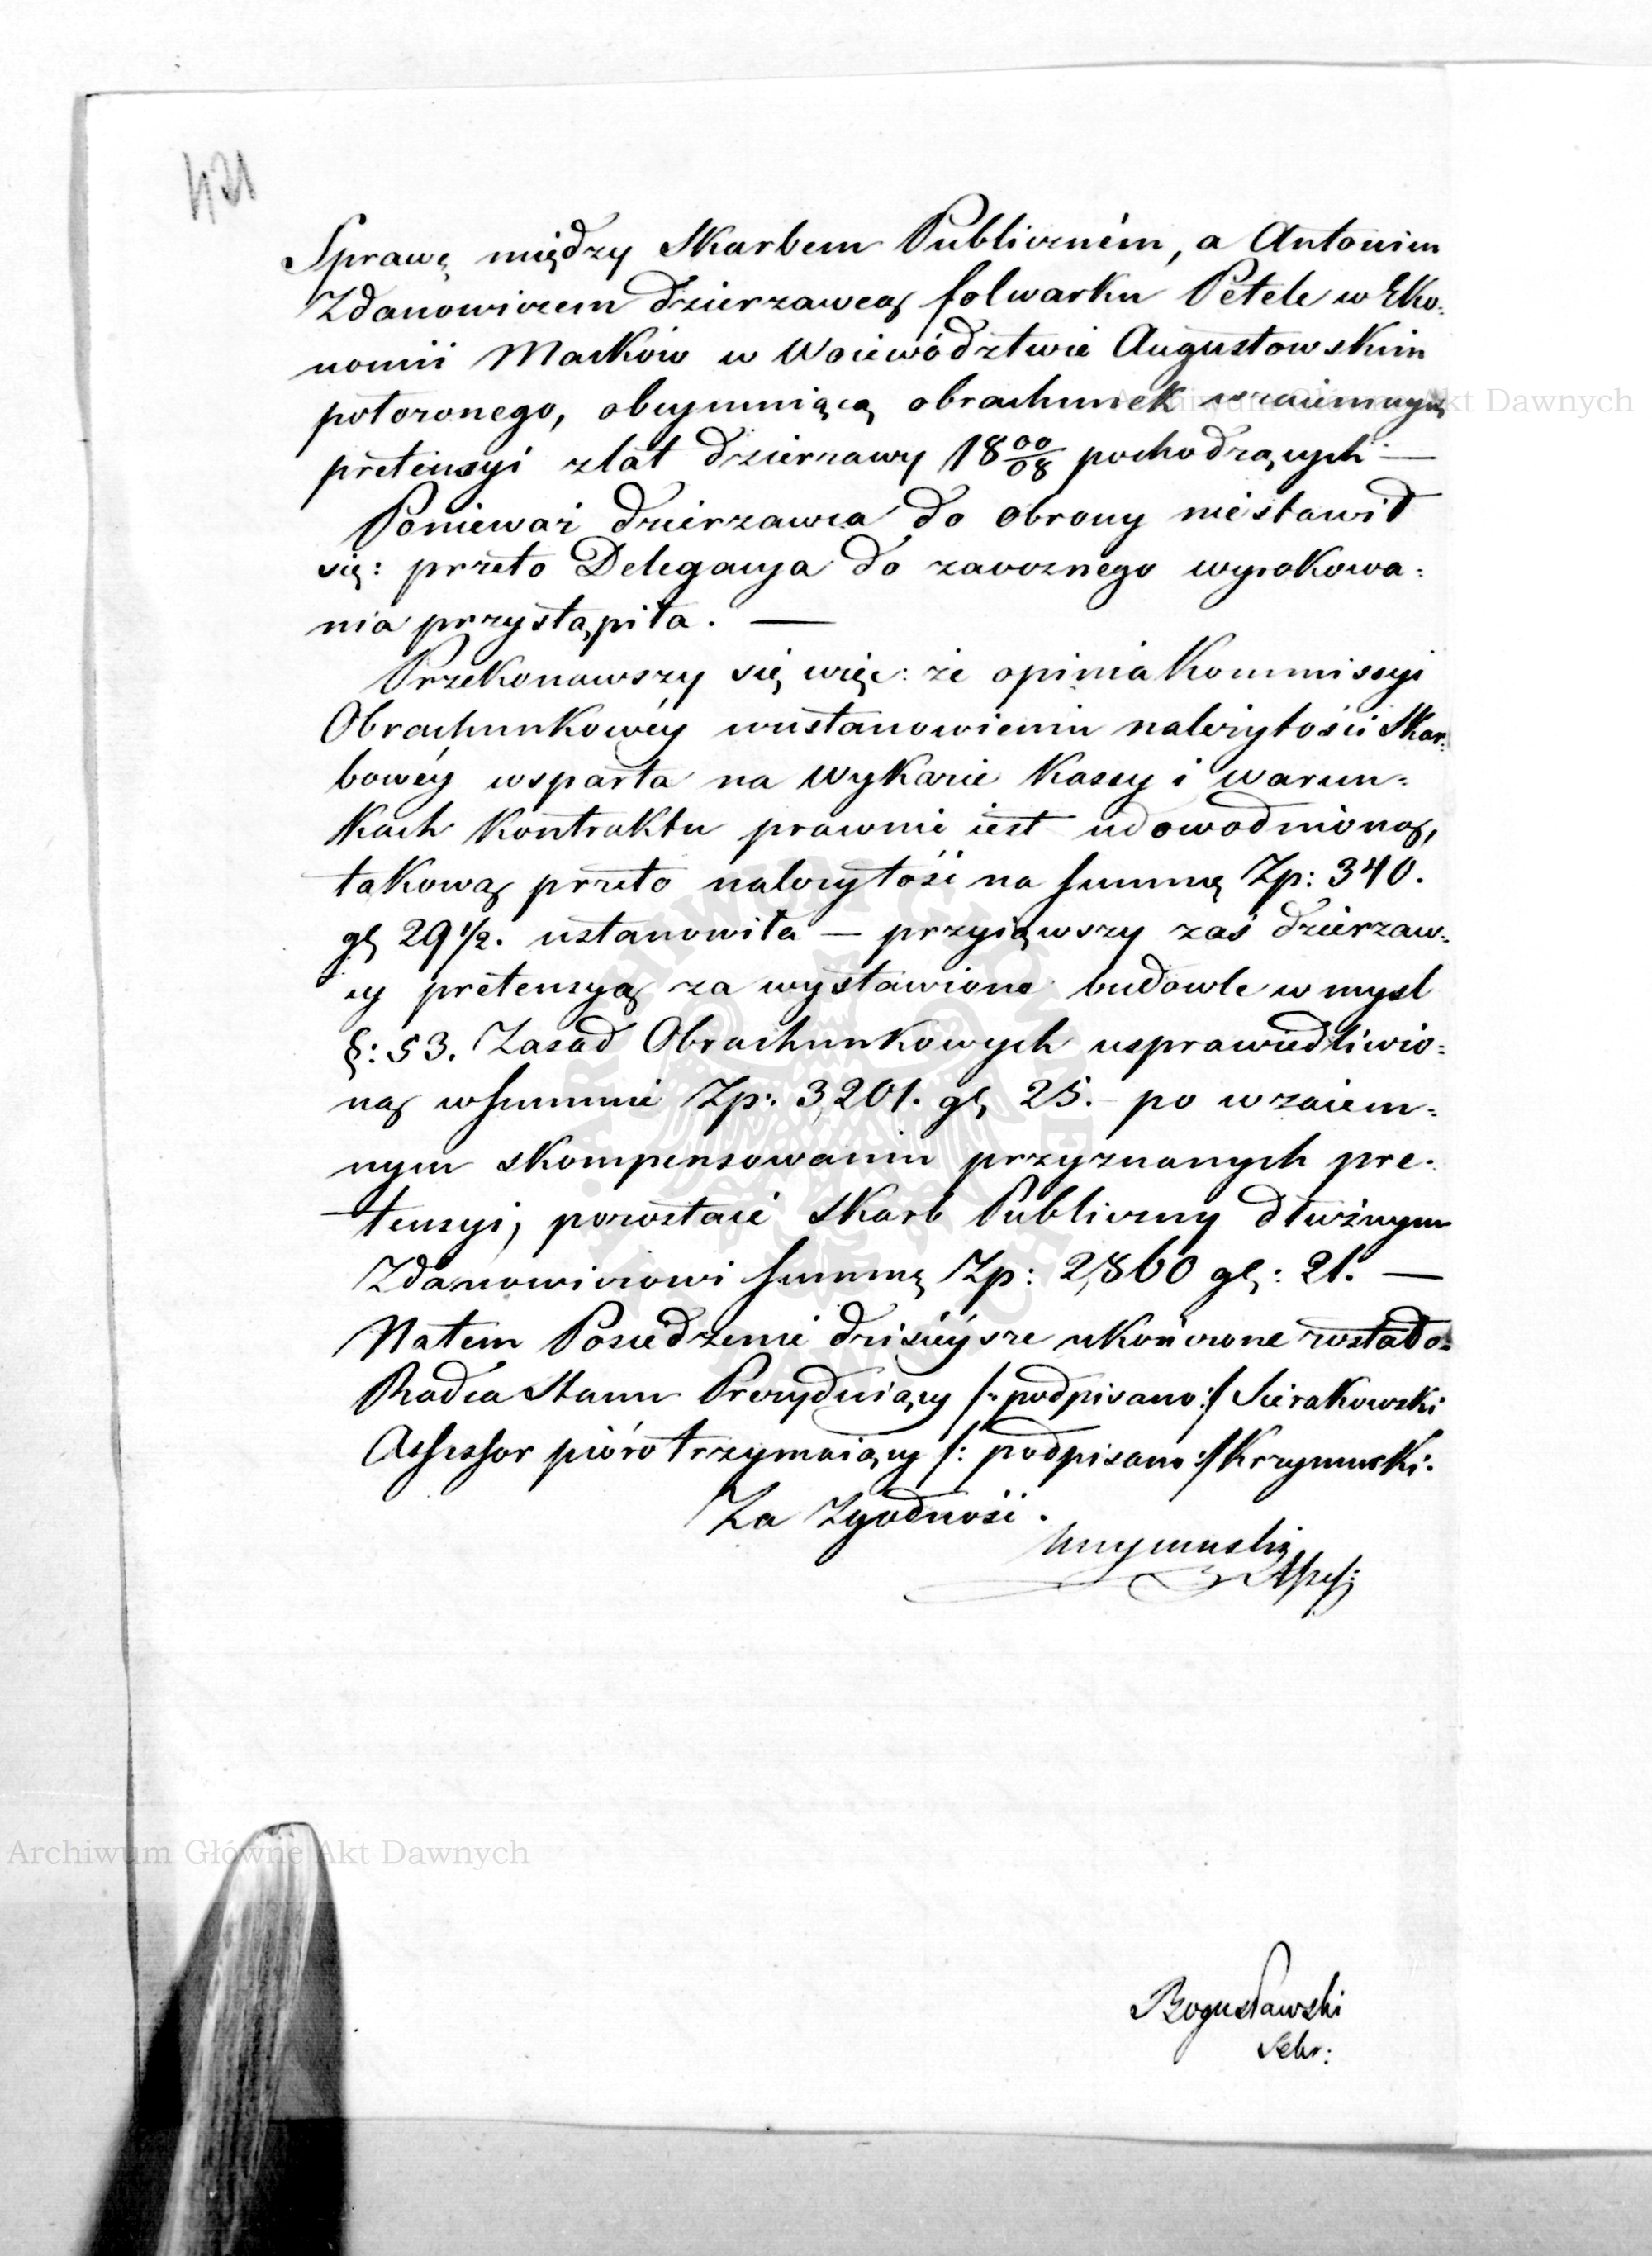 421
Sprawę między Skarbem Publiczném, a Antonim
Zdanowiczem dzierzawcą folwarku Petele w Eko-
nomii Maćków w Woiewództwie Augustowskim
położonego, obeymuiącą obrachunek wzaiemnych
Archiwum Główne Akt Dawnych
pretensyi zlat dzierzawy 18 00/08 pochodzących —
Ponieważ dzierzawca do obrony niestawił
się: przeto Delegacya do zaocznego wyrokowa=
nia przystąpiła. —
Przekonawszy się więc: że opinia Kommissyi
Obrachunkowéy wustanowieniu należytości Skar=
bowéy wsparta na Wykazie Kassy i warun=
kach Kontraktu prawnie iest udowodnioną,
takową przeto należytość na summę Zp: 340.
gl 29 1/2. ustanowiła — przyiąwszy zaś dzierzaw=
cy pretensyą za wystawione budowle w mysl
§: 53. Zasad Obrachunkowych usprawiedliwio=
ną wsummie Zp: 3,201. gl 25. — po wzaiem=
nym skompensowaniu przyznanych pre-
tensyi, pozostaie Skarb Publiczny dłużnym
Zdanowiczowi summę Zp: 2,860 gl: 21. —
Natem Posiedzenie dzisieysze ukończone zostało.
Radca Stanu Prezyduiący /: podpisano :/ Sierakowski
Assessor pióro trzymaiący /: podpisano :/ Krzymuski.
Za Zgodność.
Krzymuski
Assess:
ARCHIWUM GŁÓWNE AKT DAWNYCH
Archiwum Główne Akt Dawnych
Bogusławski
Sekr: